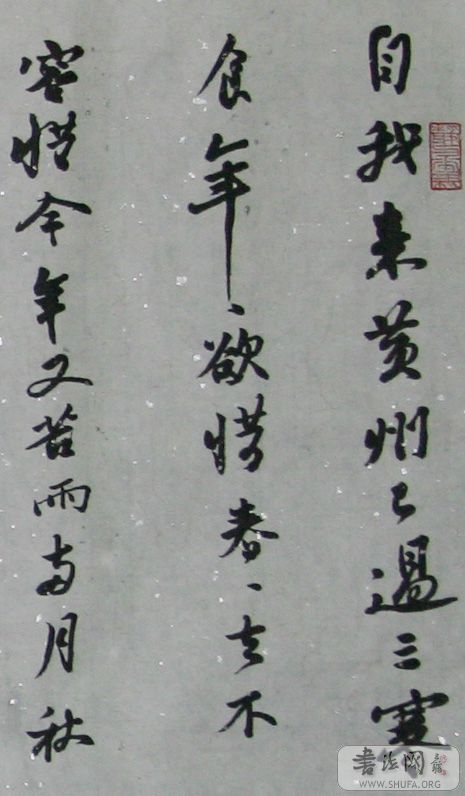 自我来黄州已过三寒
食年々欲惜春々去不
容惜今年又苦雨两月秋
書法网
WWW.SHUFA.ORG